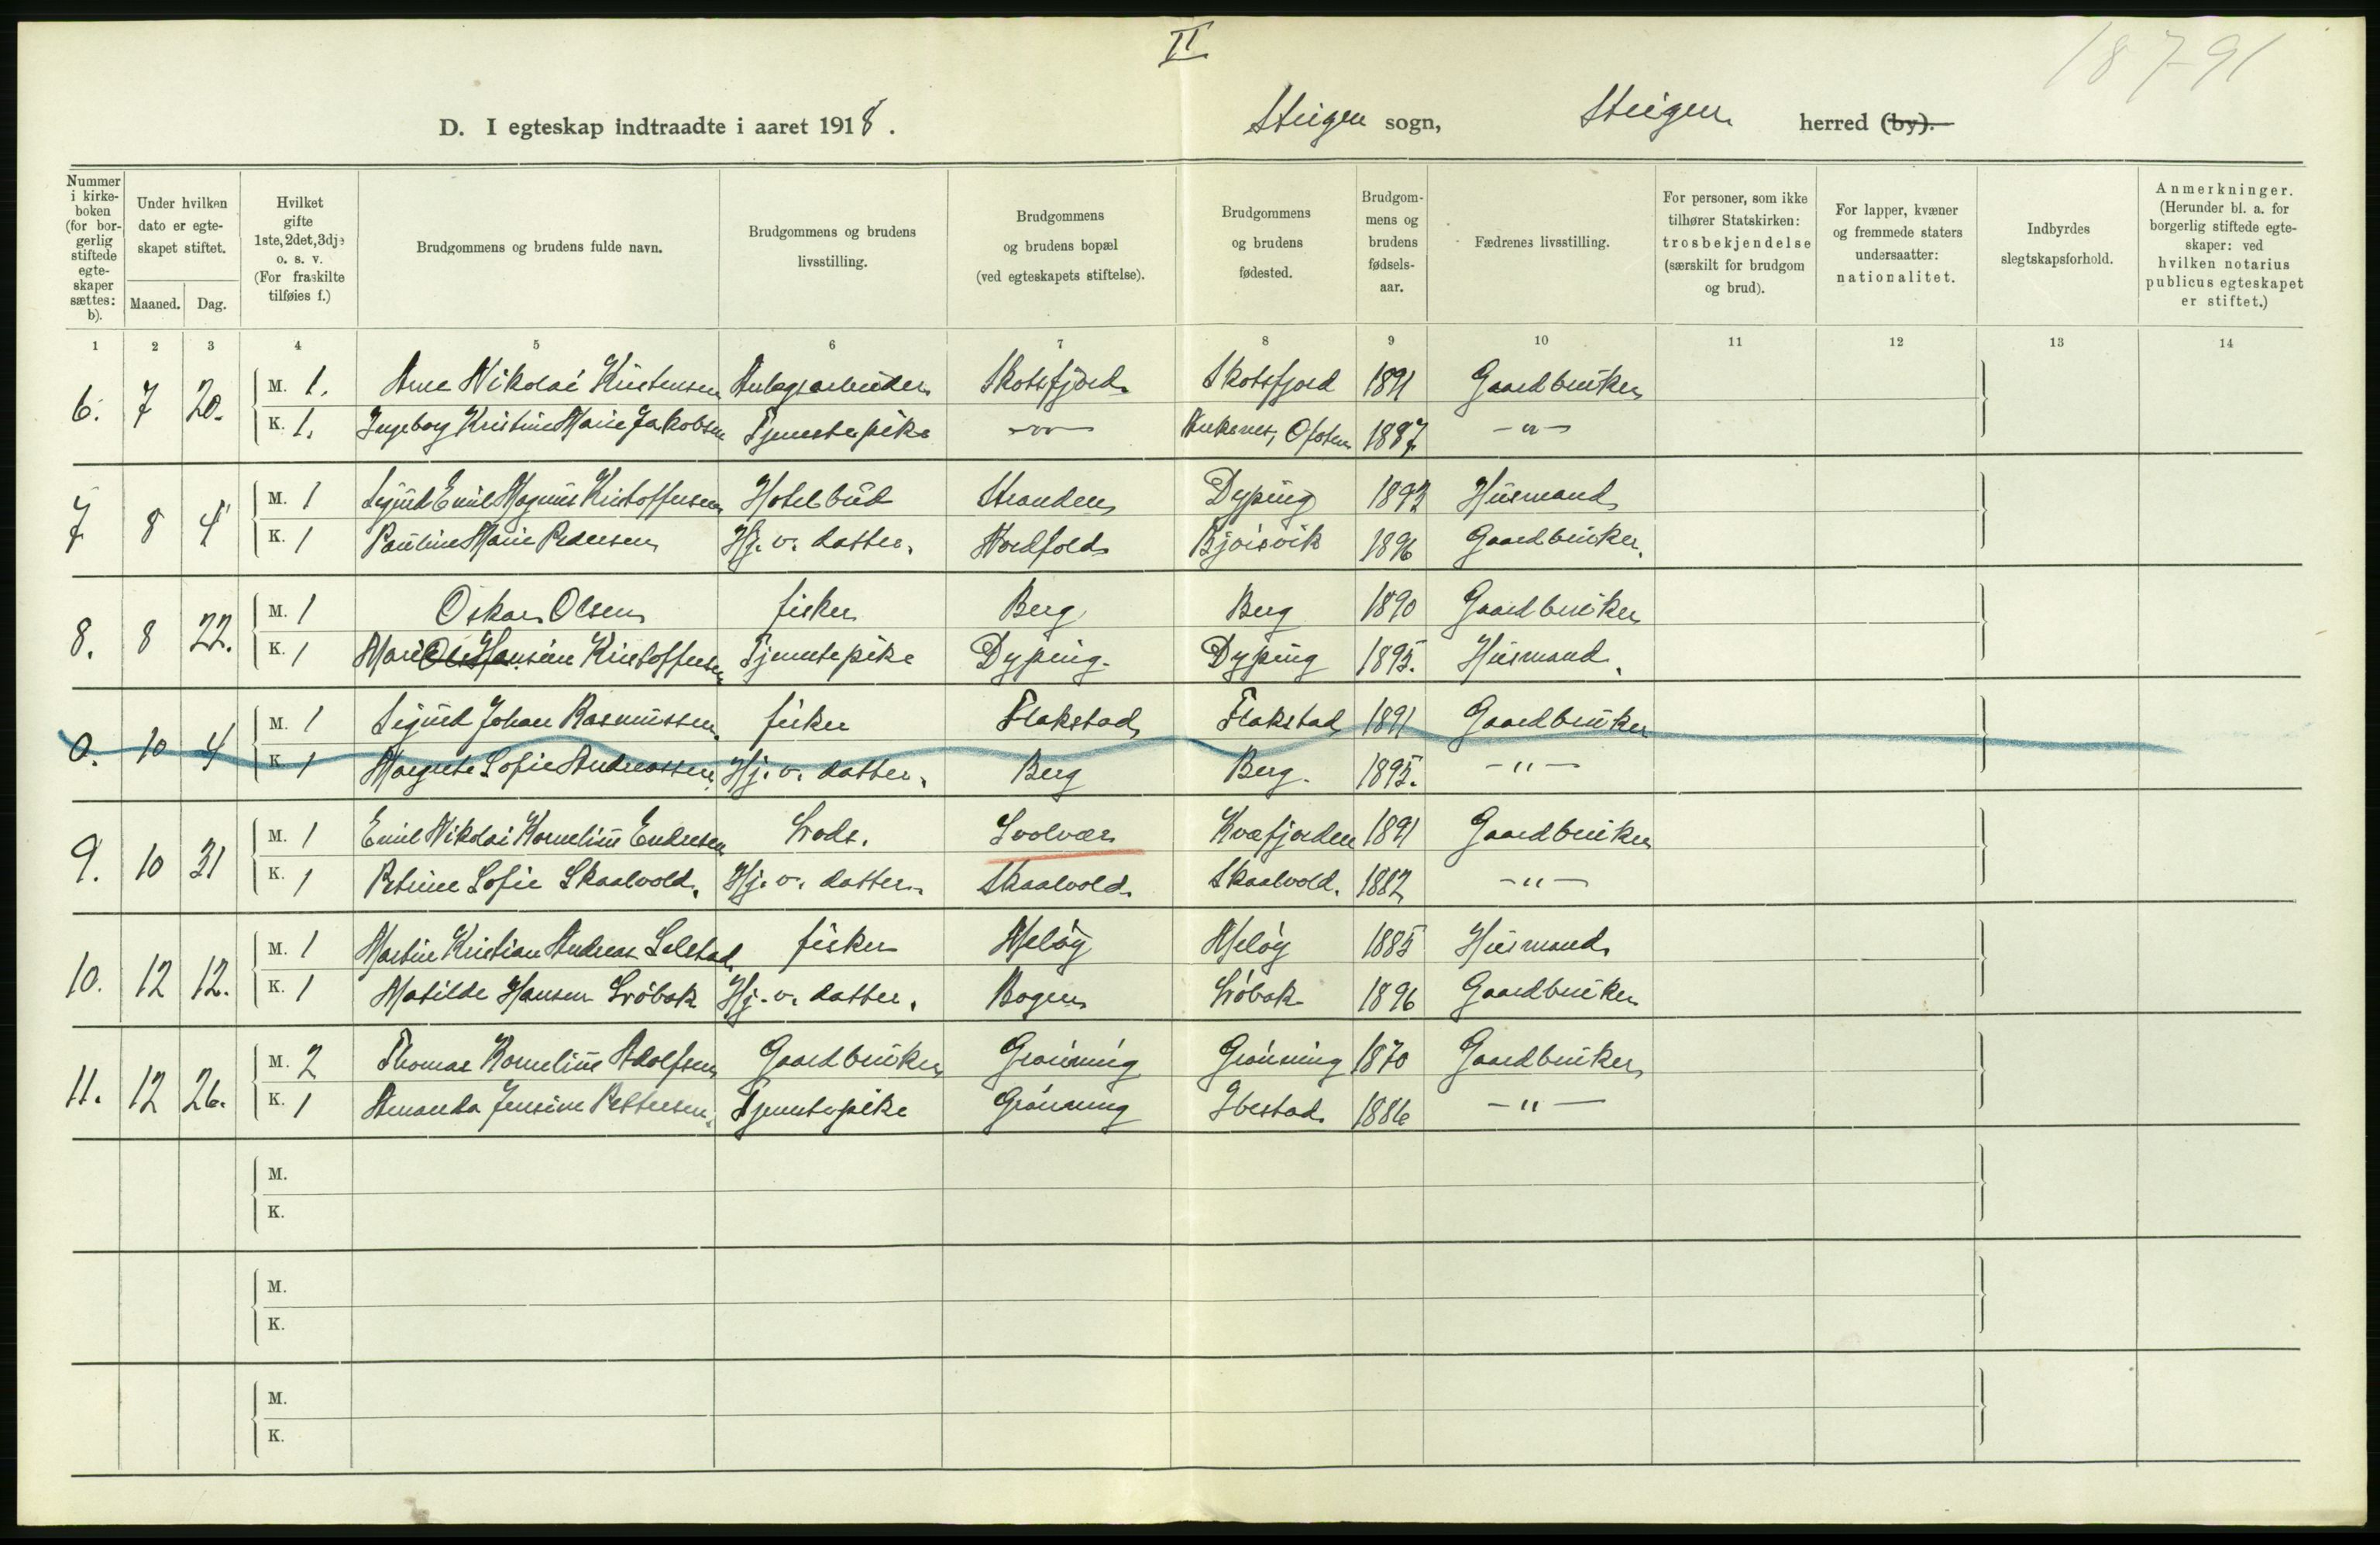 II
187-91
D. I egteskap indtraadte i aaret 1918. Steigen sogn, Steigen herred (by).
Nummer i kirkeboken (for borgerlig stiftede egteskaper sættes: b).
Under hvilken dato er egteskapet stiftet.
Maaned. Dag.
Hvilket gifte 1ste, 2det, 3dje o. s. v. (For fraskilte tilføies f.)
Brudgommens og brudens fulde navn.
Brudgommens og brudens livsstilling.
Brudgommens og brudens bopæl (ved egteskapets stiftelse).
Brudgommens og brudens fødested.
Brudgommens og brudens fødselsaar.
Fædrenes livsstilling.
For personer, som ikke tilhører Statskirken: trosbekjendelse (særskilt for brudgom og brud).
For lapper, kvæner og fremmede staters undersaatter: nationalitet.
Indbyrdes slegtskapsforhold.
Anmerkninger. (Herunder bl. a. for borgerlig stiftede egteskaper: ved hvilken notarius publicus egteskapet er stiftet.)
1 2 3 4 5 6 7 8 9 10 11 12 13 14
6. 7 20. M. 1. Arne Nikolai Kristensen Anlegsarbeider Skotsfjord Skotsfjord 1891 Gaardbruker
K. 1. Ingeborg Kristine Marie Jakobsen Tjenestepike -"- Ankenes, Ofoten 1887 -"-
7 8 4 M. 1 Sigurd Emil Magnus Kristoffersen Hotelbud Stranden Dyping 1893 Husmand
K. 1 Pauline Marie Pedersen Hj. v. datter. Nordfold Bjørsvik 1896 Gaardbruker.
8. 8 22. M. 1 Oskar Olsen fisker Berg Berg 1890 Gaardbruker
K. 1 Marie Ols Hansine Kristoffersen Tjenestepike Dyping. Dyping 1895. Husmand.
0. 10 4 M. 1 Sigurd Johan Rasmussen. fisker Flakstad Flakstad 1891 Gaardbruker
K. 1 Margrete Sofie Andreassen. Hj. v. datter. Berg Berg. 1895. -"-
9. 10 31 M. 1 Emil Nikolai Kornelius Endresen Lods. Svolvær Kvæfjorden 1891 Gaardbruker
K. 1 Petrine Sofie Skaalvold. Hj. v. datter. Skaalvold. Skaalvold. 1882 -"-
10. 12 12. M. 1 Martin Kristian Andreas Selstad fisker Meløy Meløy 1885 Husmand
K. 1 Matilde Hansen Løbak Hj. v. datter. Bogen Løbak 1896 Gaardbruker
11. 12 26. M. 2 Thomas Kornelius Adolfsen Gaardbruker Grønning Grønning 1870 Gaardbruker
K. 1 Amanda Jensine Pettersen. Tjenestepike Grønning Ibestad. 1886 -"-
M.
K.
M.
K.
M.
K.